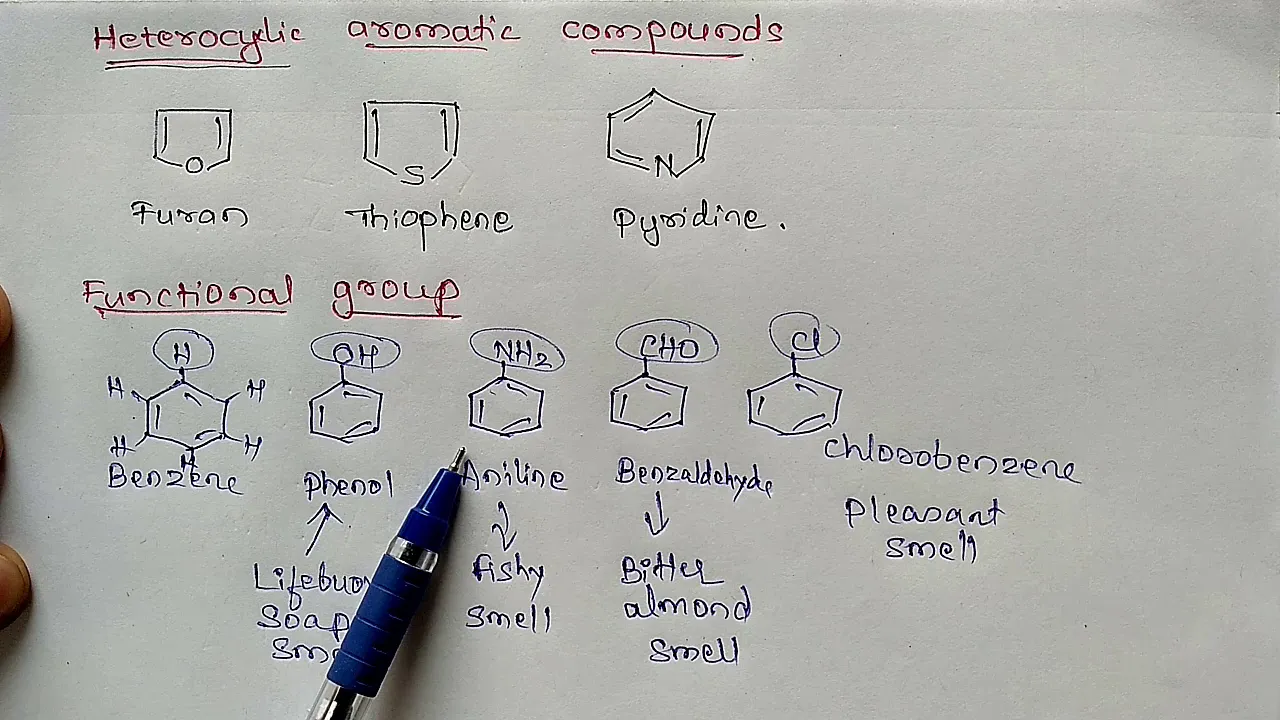 Heterocylic aromatic compounds
O S N
Furan Thiophene Pyridine.
Functional group
H OH NH2 CHO Cl
H H
H H
H
Benzene Phenol Aniline Benzaldehyde Chlorobenzene
Fishy Bitter Pleasant
Soap smell almond smell
smell